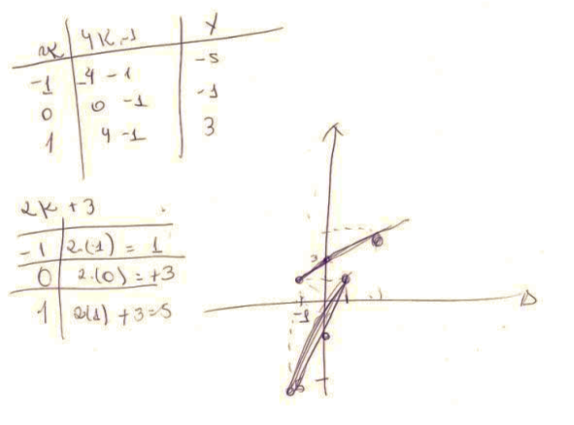 x | 4x-1 | y
-1 | -4 -1 | -5
0 | 0 -1 | -1
1 | 4 -1 | 3
2x +3
-1 | 2.(-1) = 1
0 | 2.(0) = +3
1 | 2(1) +3=5
3
-1 1